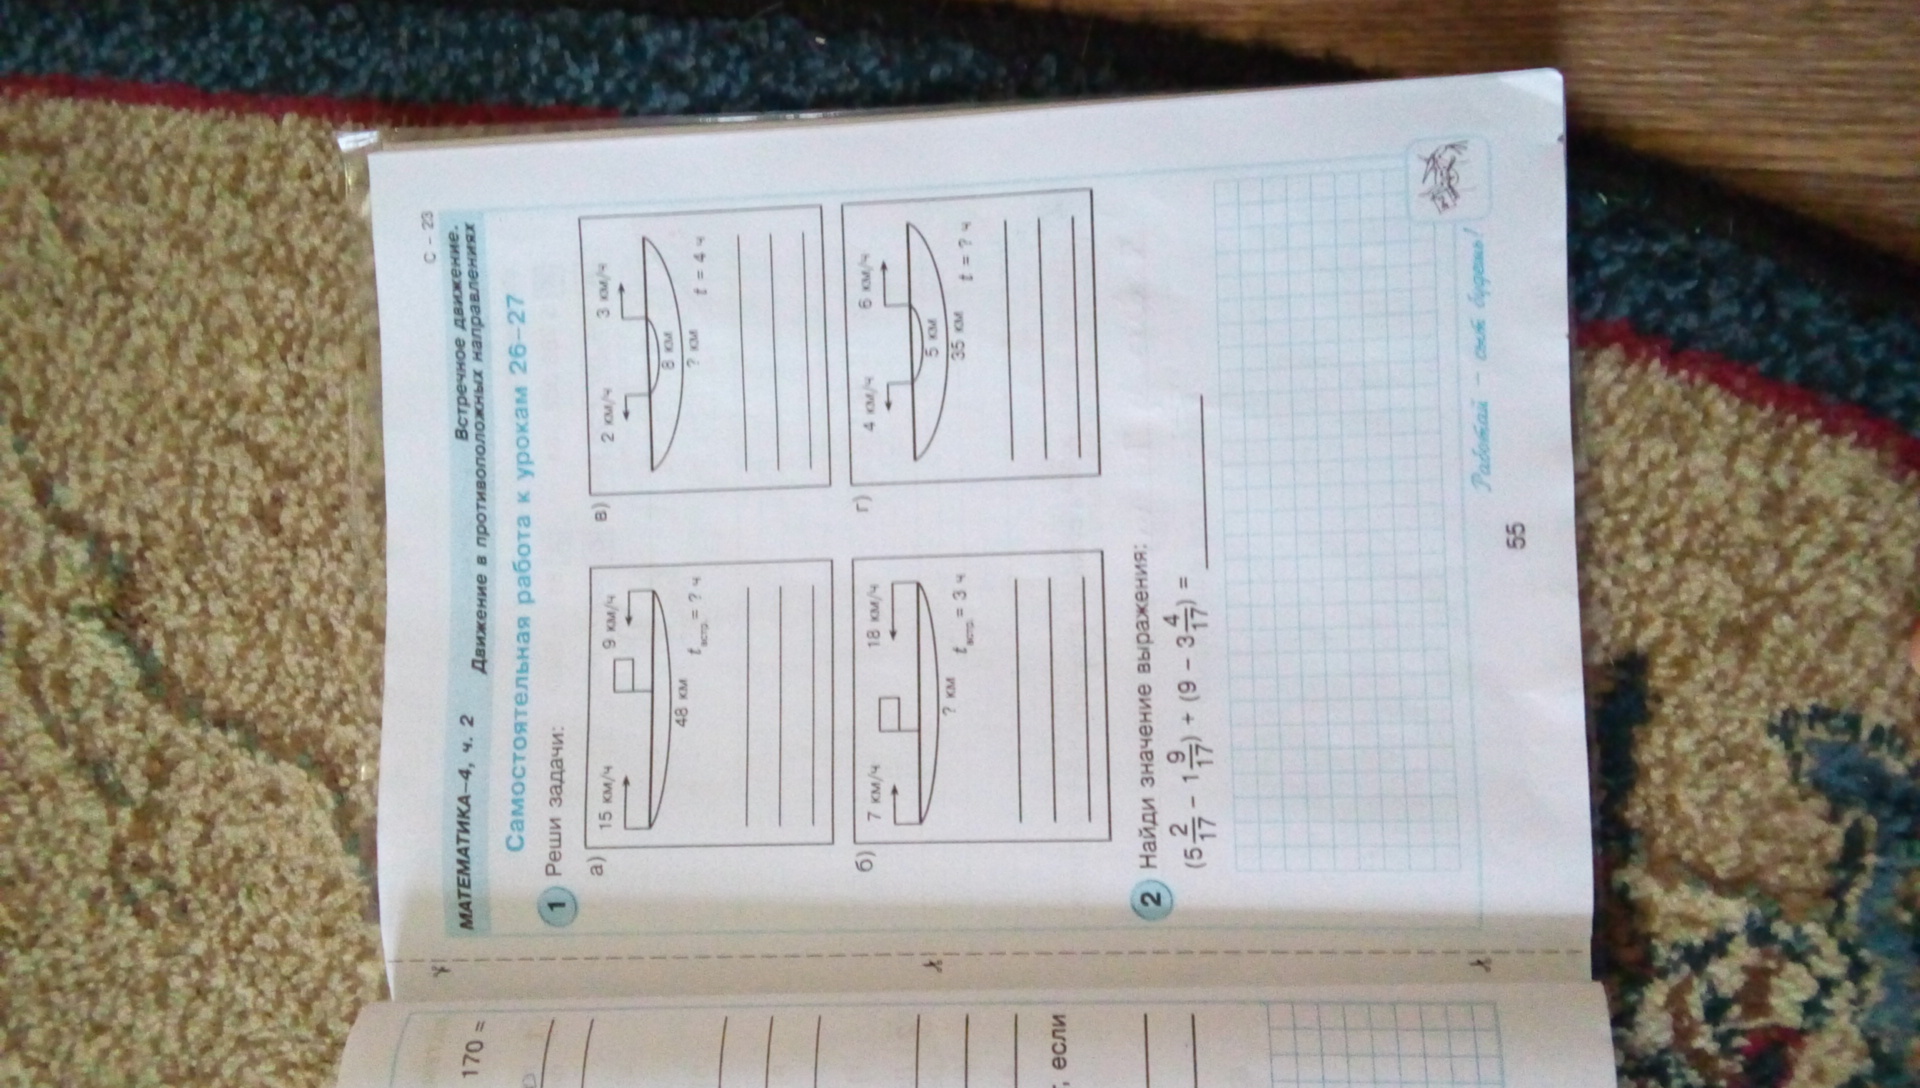 С – 23
МАТЕМАТИКА–4, ч. 2 Встречное движение.
Движение в противоположных направлениях
Самостоятельная работа к урокам 26–27
1 Реши задачи:
а)
15 км/ч 9 км/ч
48 км
t встр. = ? ч
в)
2 км/ч 3 км/ч
8 км
? км
t = 4 ч
б)
7 км/ч 18 км/ч
? км
t встр. = 3 ч
г)
4 км/ч 6 км/ч
5 км
35 км
t = ? ч
2 Найди значение выражения:
(5 2/17 – 1 9/17) + (9 – 3 4/17) =
Работай – сыт будешь!
55
170 =
, если